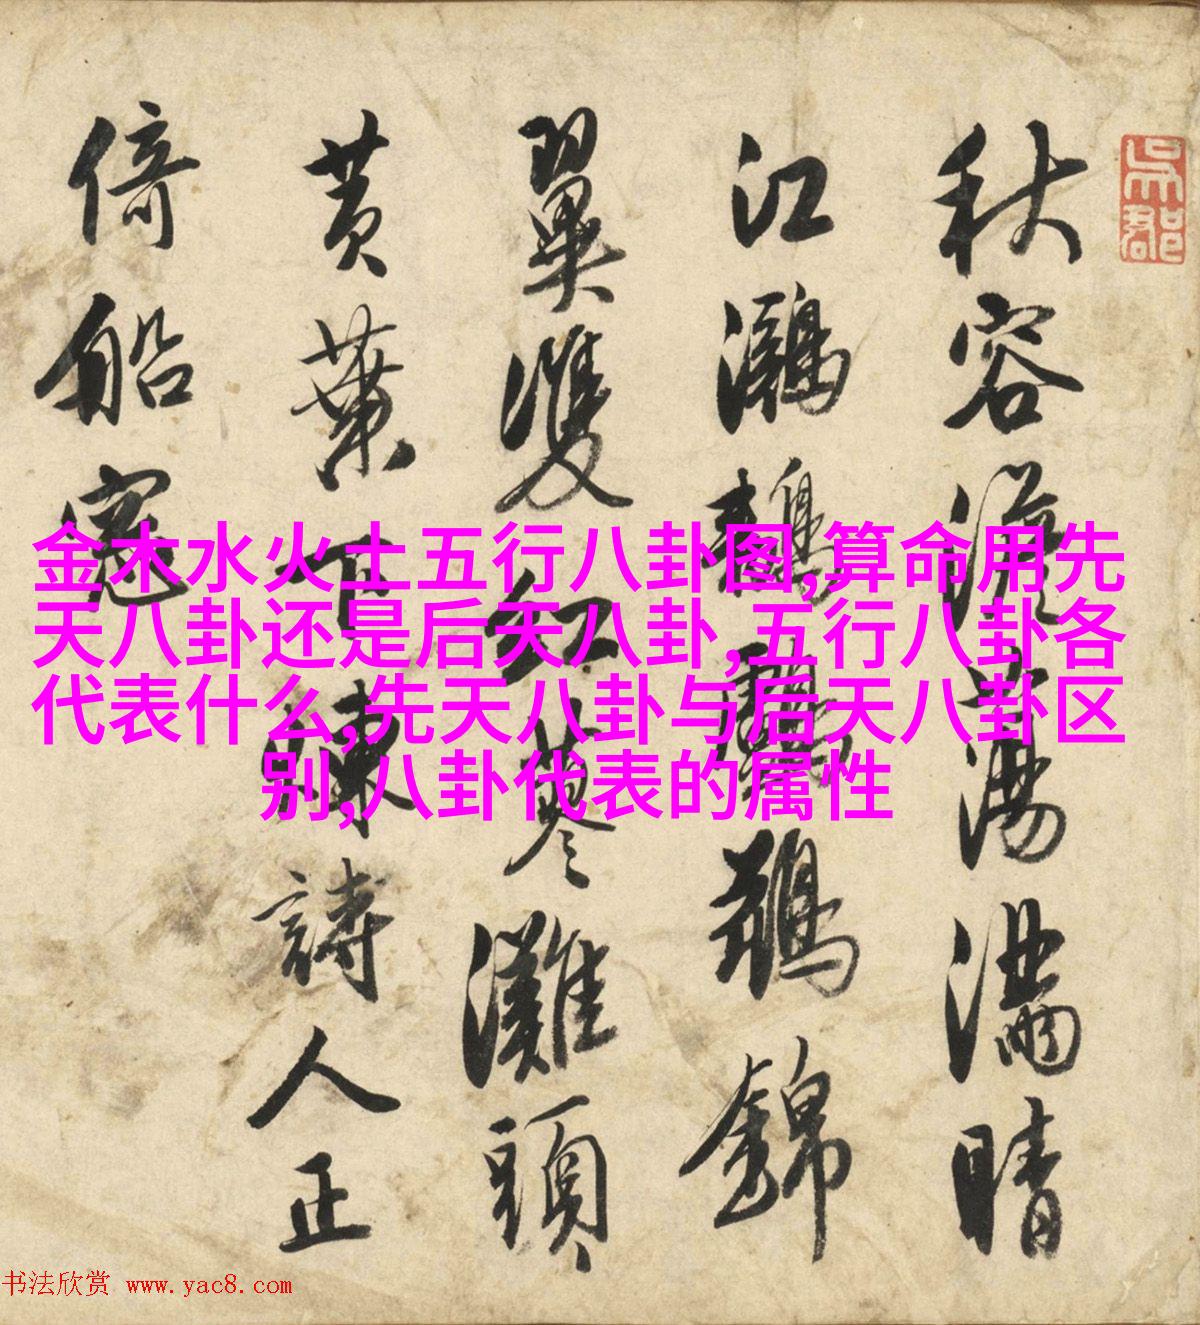 吳郡
秋容蕩滿晴
江鸂鶒鶄錦
翼雙紅蓼灘頭
黃葉下詩人正
倚船窓
金木水火土五行八卦图,算命用先
天八卦还是后天八卦,五行八卦各
代表什么,先天八卦与后天八卦区
别,八卦代表的属性
书法欣赏 www.yac8.com